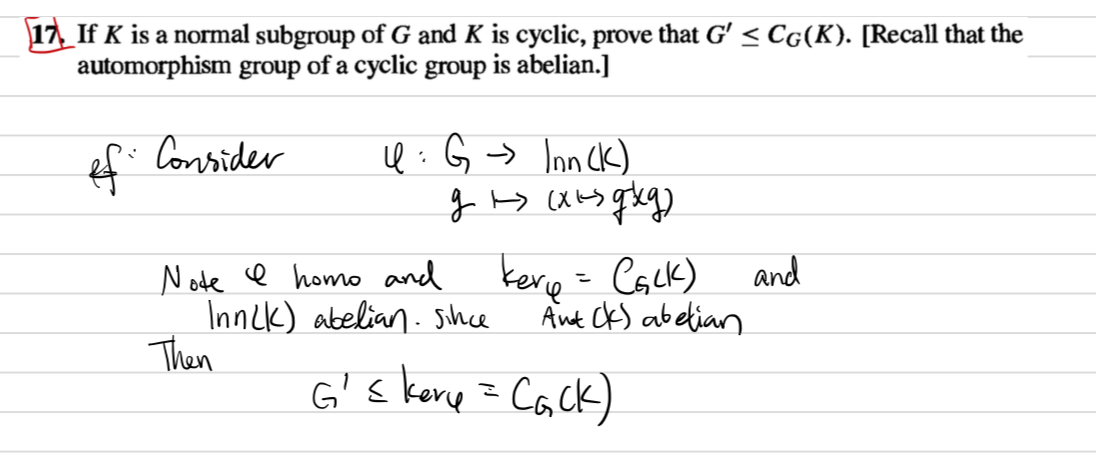 17. If K is a normal subgroup of G and K is cyclic, prove that G′ ≤ C_G(K). [Recall that the
automorphism group of a cyclic group is abelian.]
pf: Consider φ : G → Inn(K)
g ↦ (x ↦ g⁻¹xg)
Note φ homo and kerφ = C_G(K) and
Inn(K) abelian. since Aut(K) abelian
Then
G' ≤ kerφ = C_G(K)